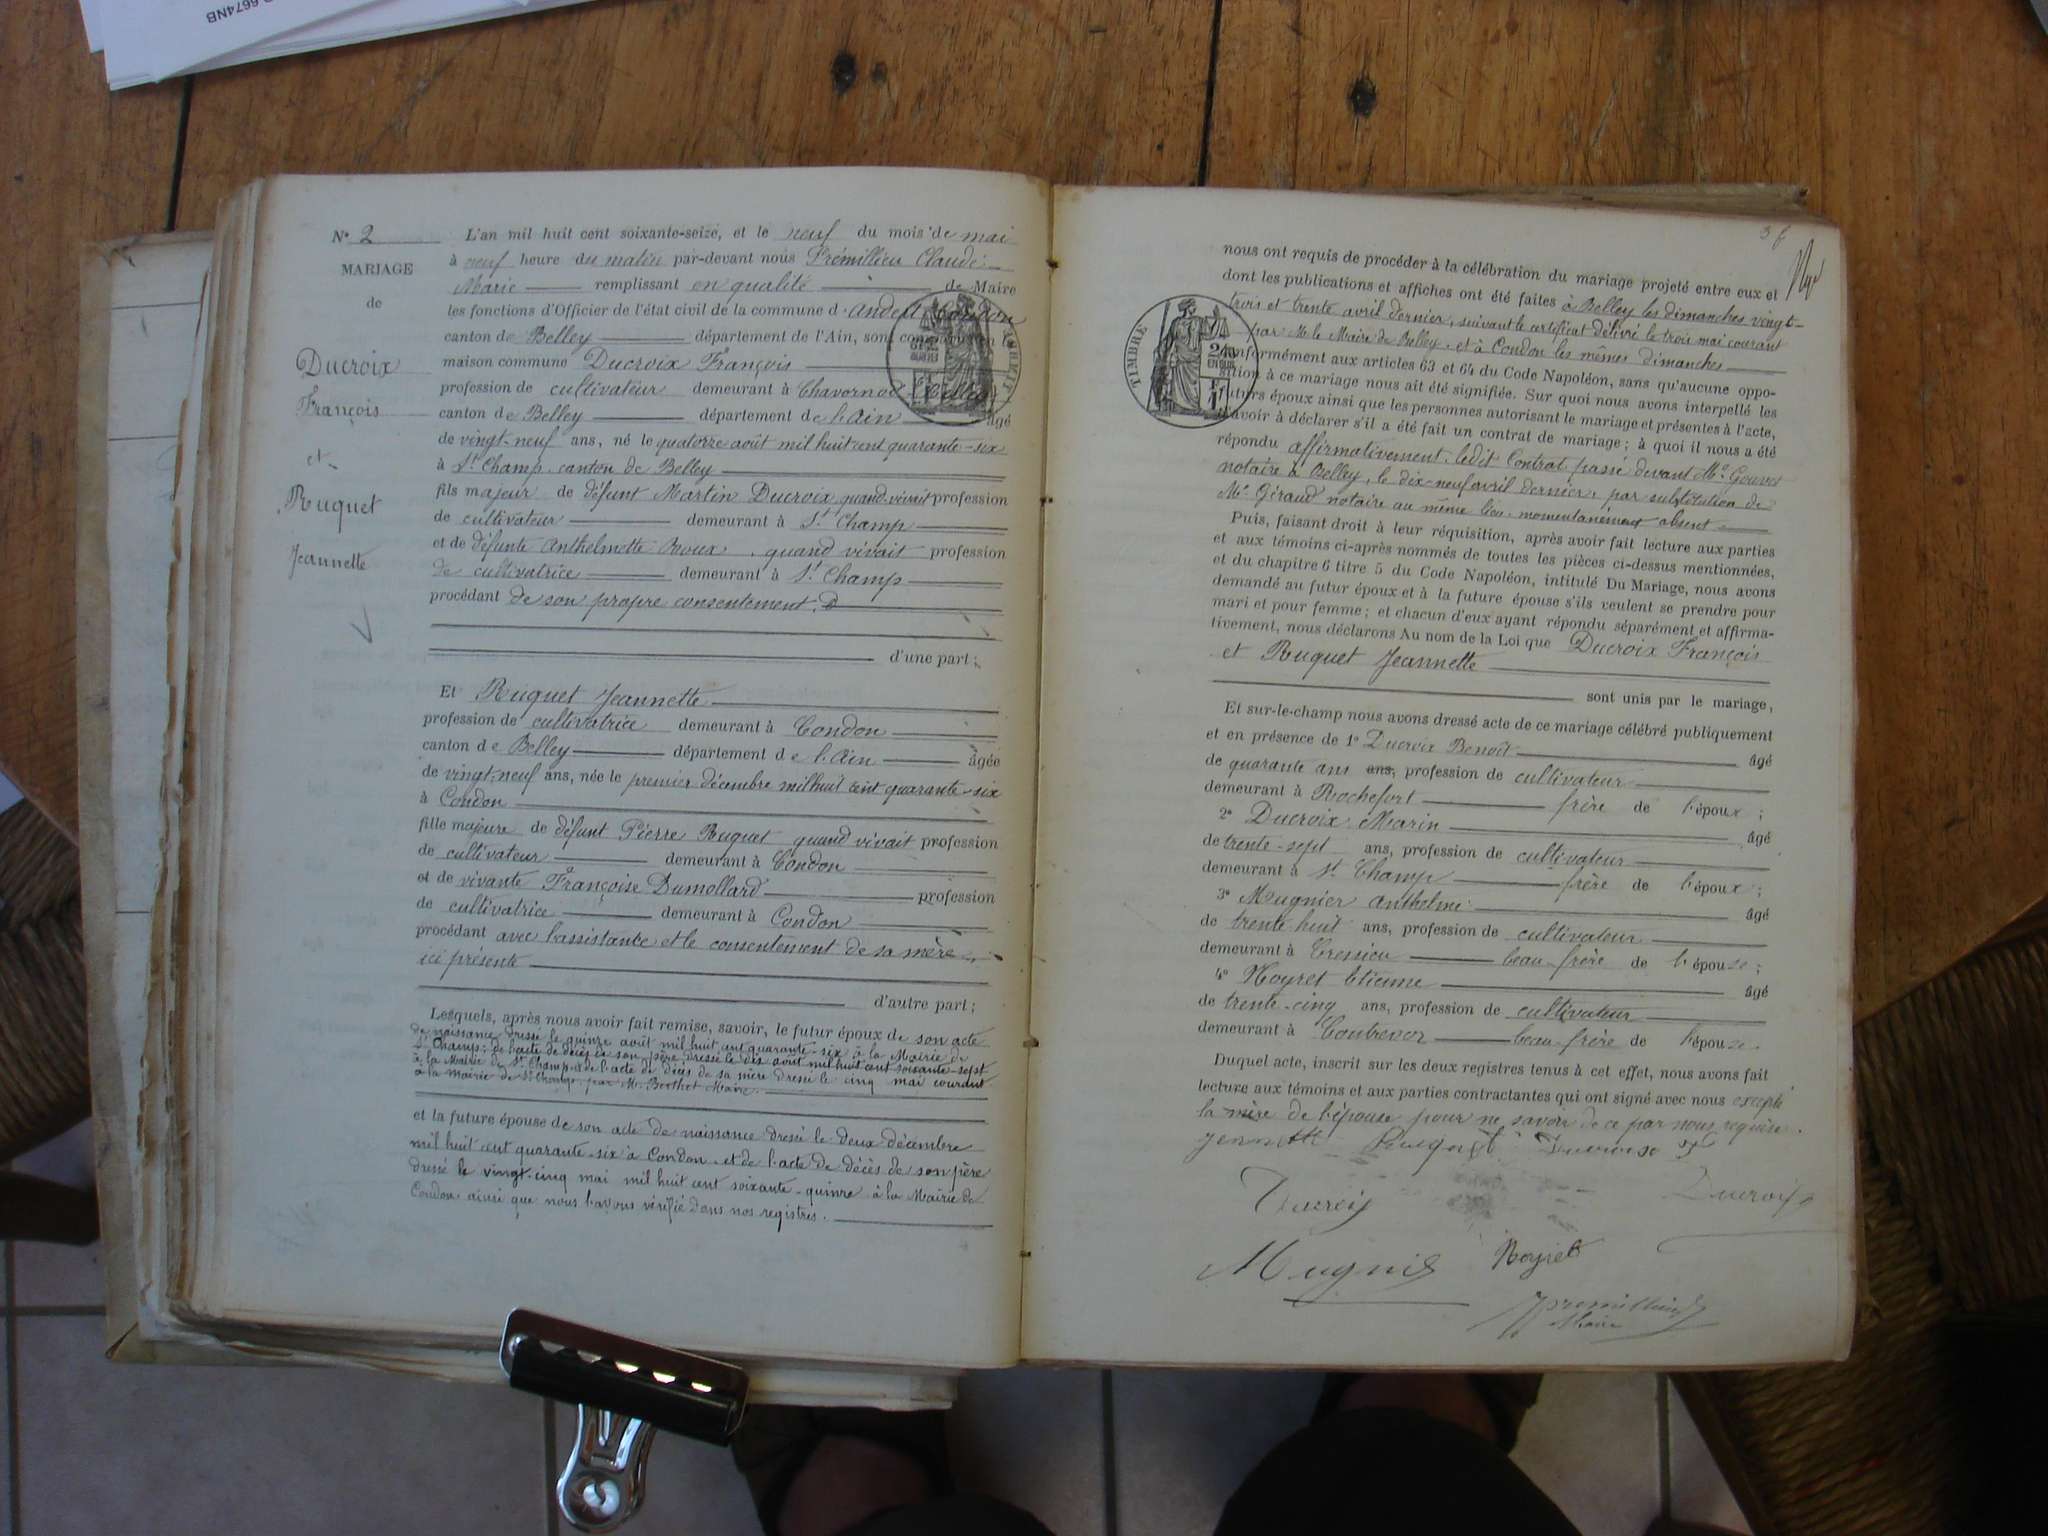 6674NB
N° 2
MARIAGE
de
Ducroix
François
et
Ruquet
Jeannette
L'an mil huit cent soixante-seize, et le neuf du mois de mai
à neuf heure du matin par-devant nous Prémillieu Claude
Marie remplissant en qualité de Maire
les fonctions d'Officier de l'état civil de la commune d'Andert-Condon
canton de Belley département de l'Ain, sont
maison commune Ducroix François
profession de cultivateur demeurant à Chavornod
canton de Belley département de l'Ain âgé
de vingt-neuf ans, né le quatorze août mil huit cent quarante-six
à St Champ canton de Belley
fils majeur de défunt Martin Ducroix quand vivait profession
de cultivateur demeurant à St Champ
et de défunte Anthelmette Roux, quand vivait profession
de cultivatrice demeurant à St Champ
procédant de son propre consentement.
d'une part;
Et Ruquet Jeannette
profession de cultivatrice demeurant à Condon
canton de Belley département de l'Ain âgée
de vingt-neuf ans, née le premier décembre mil huit cent quarante-six
à Condon
fille majeure de défunt Pierre Ruquet quand vivait profession
de cultivateur demeurant à Condon
et de vivante Françoise Dumollard profession
de cultivatrice demeurant à Condon
procédant avec l'assistance et le consentement de sa mère
ici présente
d'autre part;
Lesquels, après nous avoir fait remise, savoir, le futur époux de son acte
de naissance dressé le quinze août mil huit cent quarante-six à la Mairie de
St Champ; de l'acte de décès de son père dressé le dix août mil huit cent soixante-sept
à la Mairie de St Champ et de l'acte de décès de sa mère dressé le cinq mai courant
à la Mairie de St Champ par Mr Berthet Maire.
et la future épouse de son acte de naissance dressé le deux décembre
mil huit cent quarante-six à Condon et de l'acte de décès de son père
dressé le vingt-cinq mai mil huit cent soixante-quinze à la Mairie de
Condon ainsi que nous l'avons vérifié dans nos registres.
nous ont requis de procéder à la célébration du mariage projeté entre eux et
dont les publications et affiches ont été faites à Belley les dimanches vingt-
trois et trente avril dernier, suivant le certificat délivré le trois mai courant
par Mr le Maire de Belley, et à Condon les mêmes dimanches
conformément aux articles 63 et 64 du Code Napoléon, sans qu'aucune oppo-
sition à ce mariage nous ait été signifiée. Sur quoi nous avons interpellé les
futurs époux ainsi que les personnes autorisant le mariage et présentes à l'acte,
d'avoir à déclarer s'il a été fait un contrat de mariage; à quoi il nous a été
répondu affirmativement. Ledit Contrat passé devant Me Gouvet
notaire à Belley, le dix-neuf avril dernier, par substitution de
Me Géraud notaire au même lieu momentanément absent
Puis, faisant droit à leur réquisition, après avoir fait lecture aux parties
et aux témoins ci-après nommés de toutes les pièces ci-dessus mentionnées,
et du chapitre 6 titre 5 du Code Napoléon, intitulé Du Mariage, nous avons
demandé au futur époux et à la future épouse s'ils veulent se prendre pour
mari et pour femme; et chacun d'eux ayant répondu séparément et affirma-
tivement, nous déclarons Au nom de la Loi que Ducroix François
et Ruquet Jeannette
sont unis par le mariage,
Et sur-le-champ nous avons dressé acte de ce mariage célébré publiquement
et en présence de 1° Ducroix Benoît âgé
de quarante ans ans, profession de cultivateur
demeurant à Rochefort frère de l'époux;
2° Ducroix Marin âgé
de trente-sept ans, profession de cultivateur
demeurant à St Champ frère de l'époux;
3° Mugnier Anthelme âgé
de trente huit ans, profession de cultivateur
demeurant à Cressieu beau-frère de l'épouse;
4° Noyret Etienne âgé
de trente-cinq ans, profession de cultivateur
demeurant à Contrevoz beau-frère de l'épouse.
Duquel acte, inscrit sur les deux registres tenus à cet effet, nous avons fait
lecture aux témoins et aux parties contractantes qui ont signé avec nous excepté
la mère de l'épouse pour ne savoir de ce par nous requise.
TIMBRE
Ducroix
Mugnié
Noyret
Maire